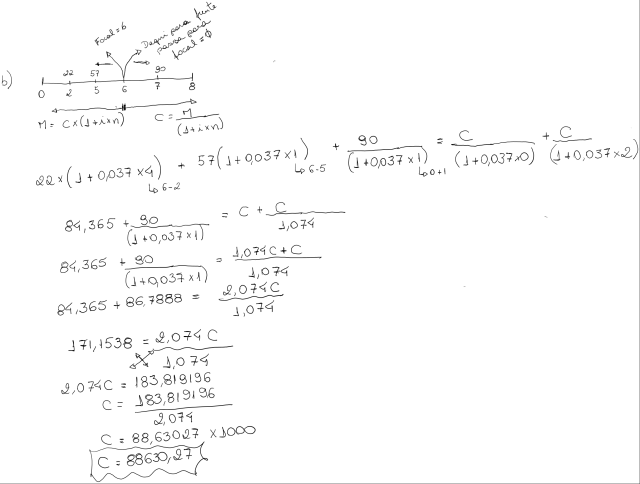 Focal=6
Daqui para frente
passa para
focal=0
b)
22 57 90
0 2 5 6 7 8
M= C×(1+i×n) C= M/(1+i×n)
22×(1+0,037×4) + 57(1+0,037×1) + 90/(1+0,037×1) = C/(1+0,037×0) + C/(1+0,037×2)
↳6-2 ↳6-5 ↳0+1
84,365 + 90/(1+0,037×1) = C + C/1,074
84,365 + 90/(1+0,037×1) = 1,074C+C/1,074
84,365 + 86,7888 = 2,074C/1,074
171,1538 = 2,074C/1,074
2,074C = 183,819196
C = 183,819196/2,074
C = 88,63027 ×1000
C = 88630,27